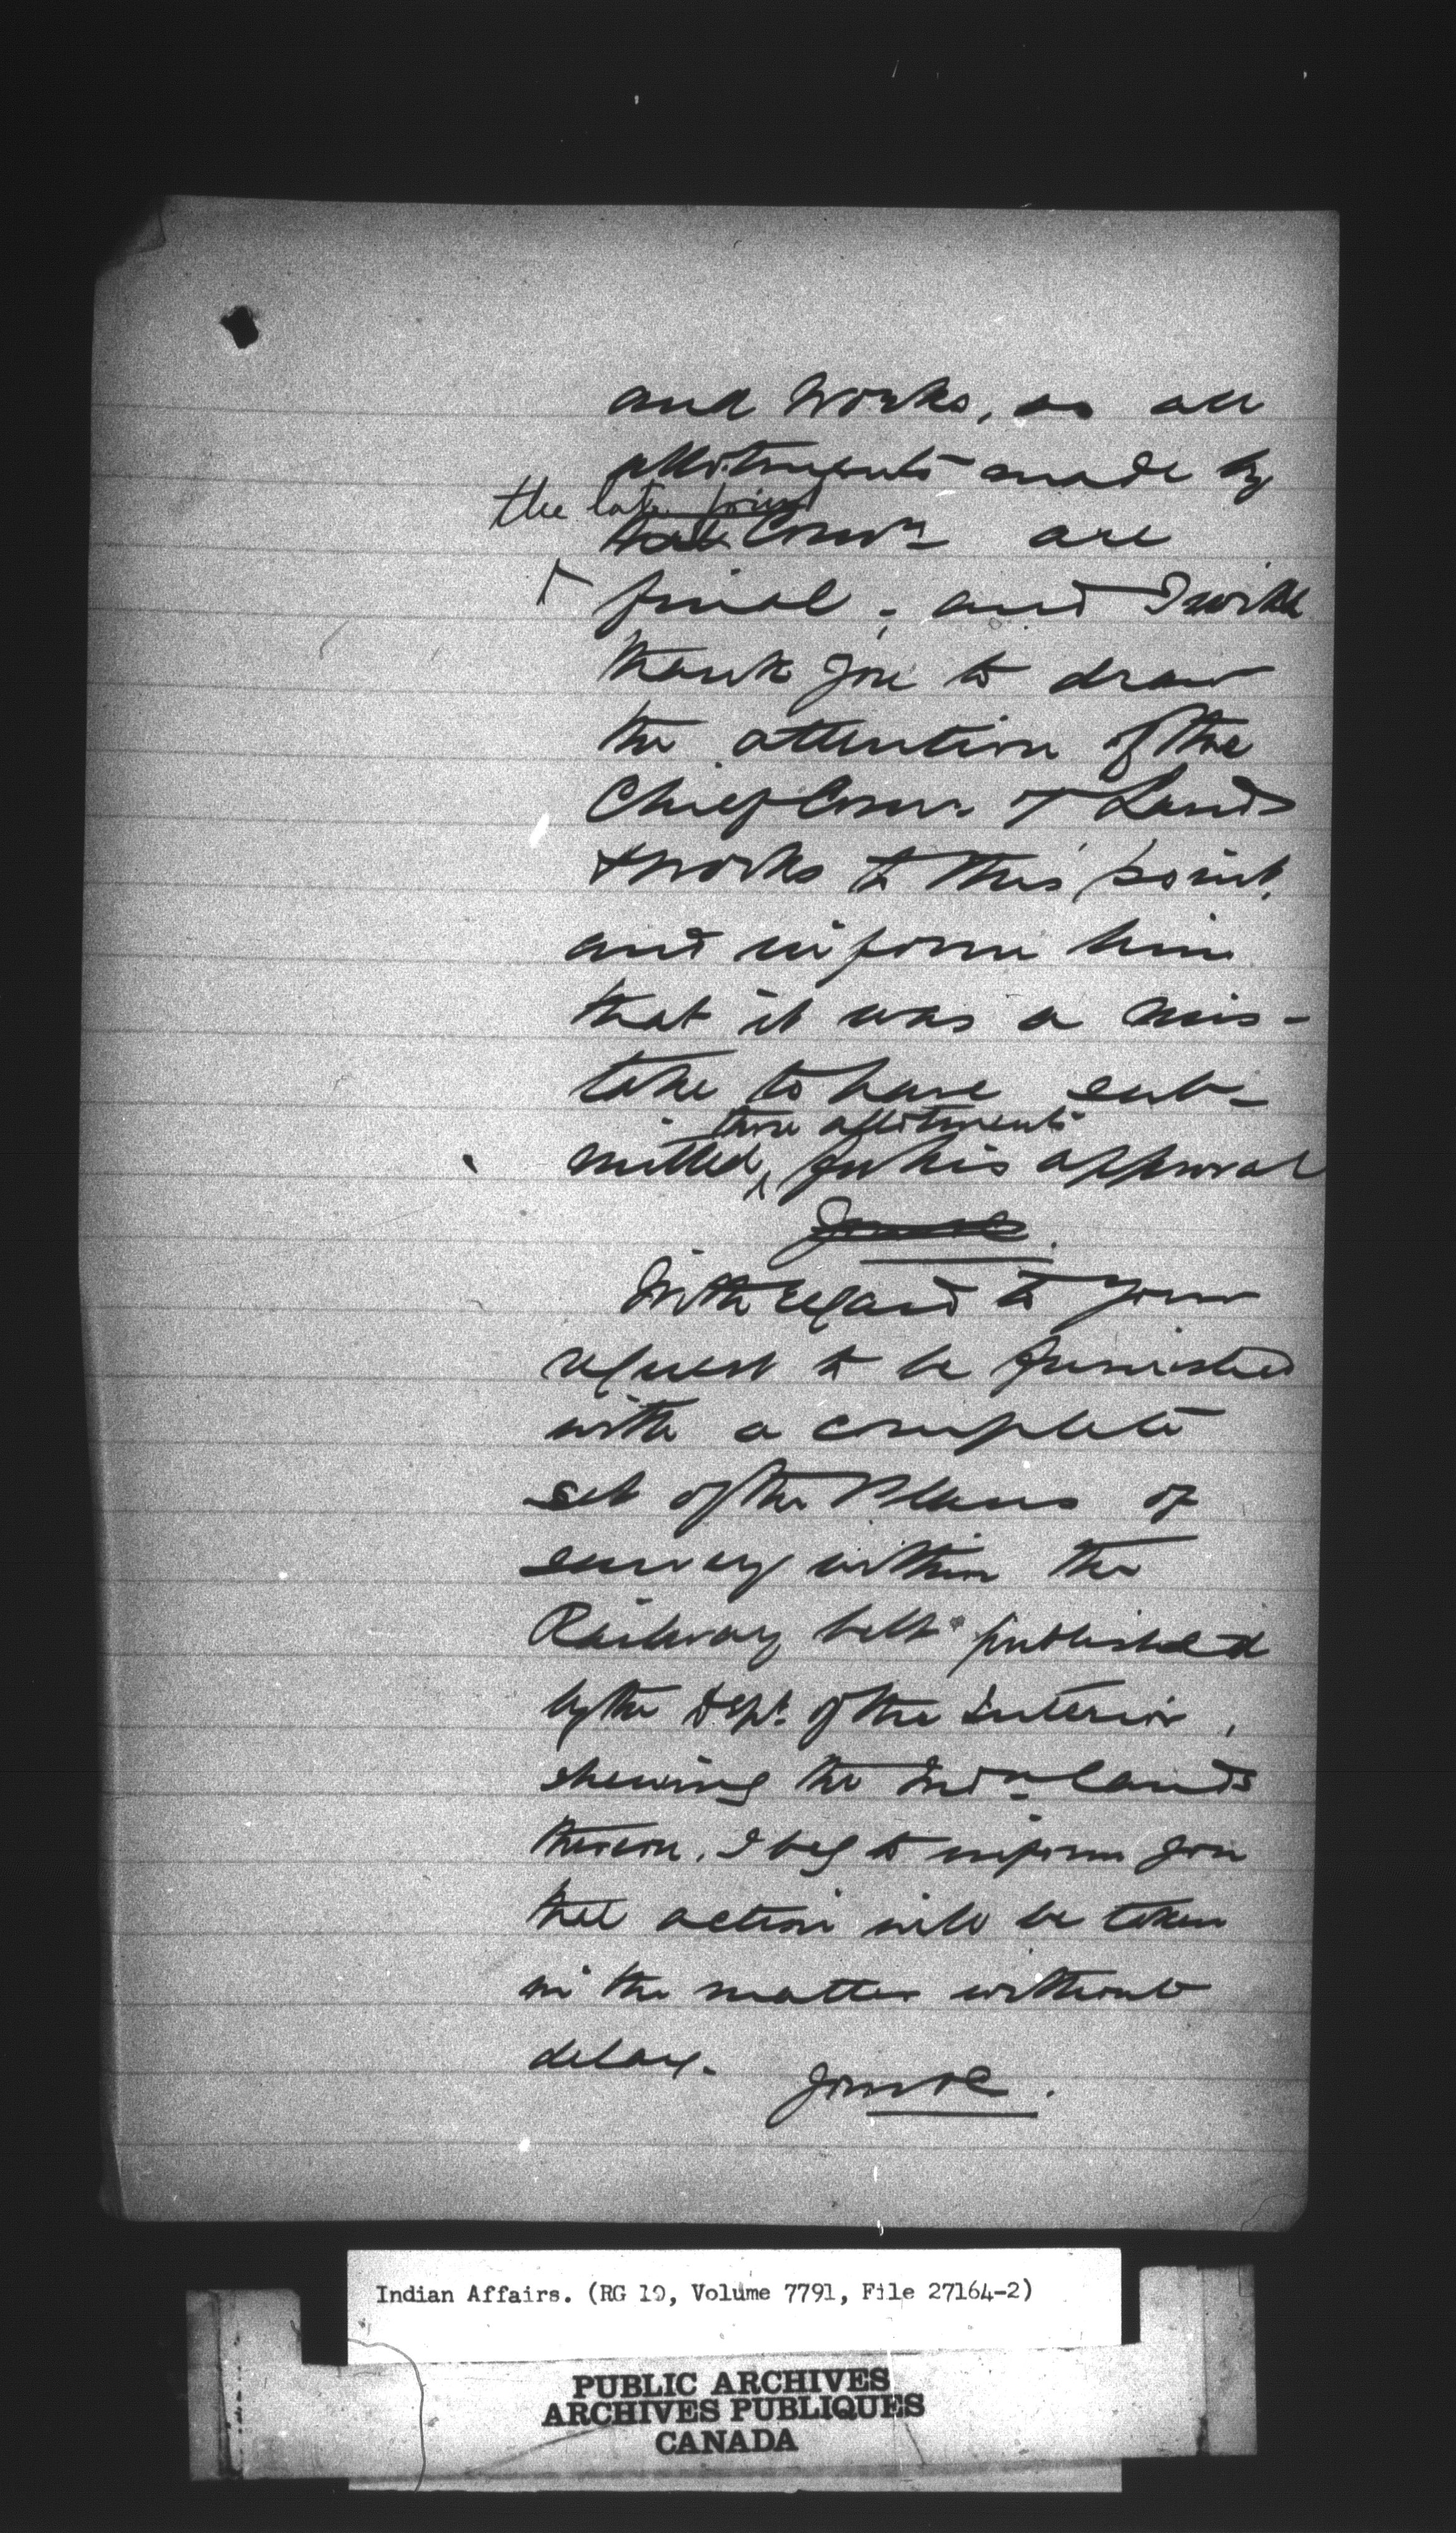 and Works, as all
allotments made by
the late joint
that Comn are
final; and I will
thank you to draw
the attention of the
Chief Comr of Lands
& Works to this point,
and inform him
that it was a mis-
take to have sub-
those allotments
mitted for his approval
With regard to your
request to be furnished
with a complete
set of the Plans of
survey within the
Railway belt published
by the Dept. of the Interior,
shewing the Indn lands
thereon, I beg to inform you
that action will be taken
in the matter without
delay.
Indian Affairs. (RG 10, Volume 7791, File 27164-2)
PUBLIC ARCHIVES
ARCHIVES PUBLIQUES
CANADA